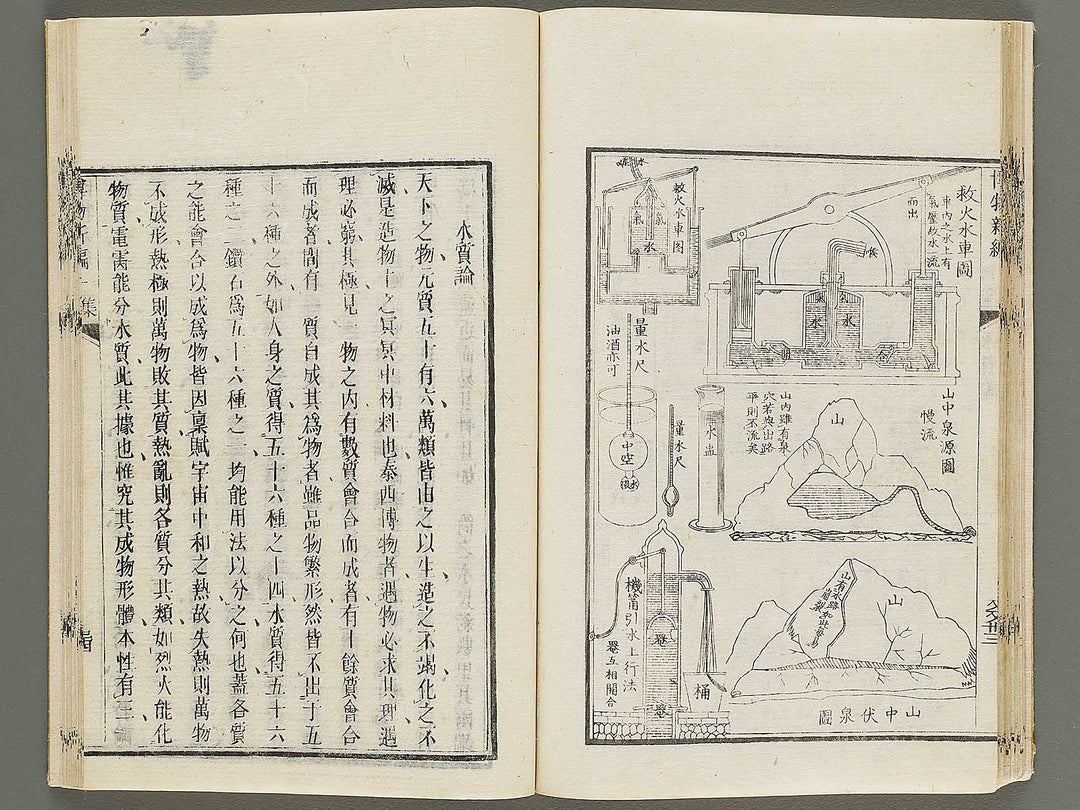 博物新編
救火水車圖
車內之水上有
氣壓故水流
而出
救火水車圖
氣
氣
水
水
水
量水尺
油酒亦可
中空
量水尺
山中泉源圖
慢流
山內雖有泉
穴若與出路
平則不流矣
山
機筩引水上行法
器互相開合
桶
山
山中伏泉圖
水質論
天下之物元質五十有六萬類皆由之以生造之不竭化之不
滅是造物主之冥冥中材料也泰西博物者遇物必求其理遇
理必窮其極見一物之內有數質會合而成者有十餘質會合
而成者間有一質自成其爲物者雖品物繁形然皆不出于五
十六種之外如人身之質得五十六種之十四水質得五十六
種之二鑽石爲五十六種之一均能用法以分之何也蓋各質
之能會合以成爲物皆因稟賦宇宙中和之熱故失熱則萬物
不成形熱極則萬物敗其質熱亂則各質分其類如烈火能化
物質電氣能分水質此其據也惟究其成物形體本性有三論
博物新編一集